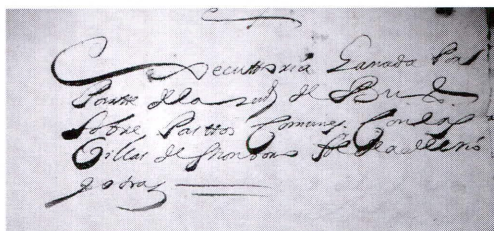 Executtoria Ganada Por
Parte de la ziud de
Sobre Pasttos Comunes Con las
Villas de
y otras